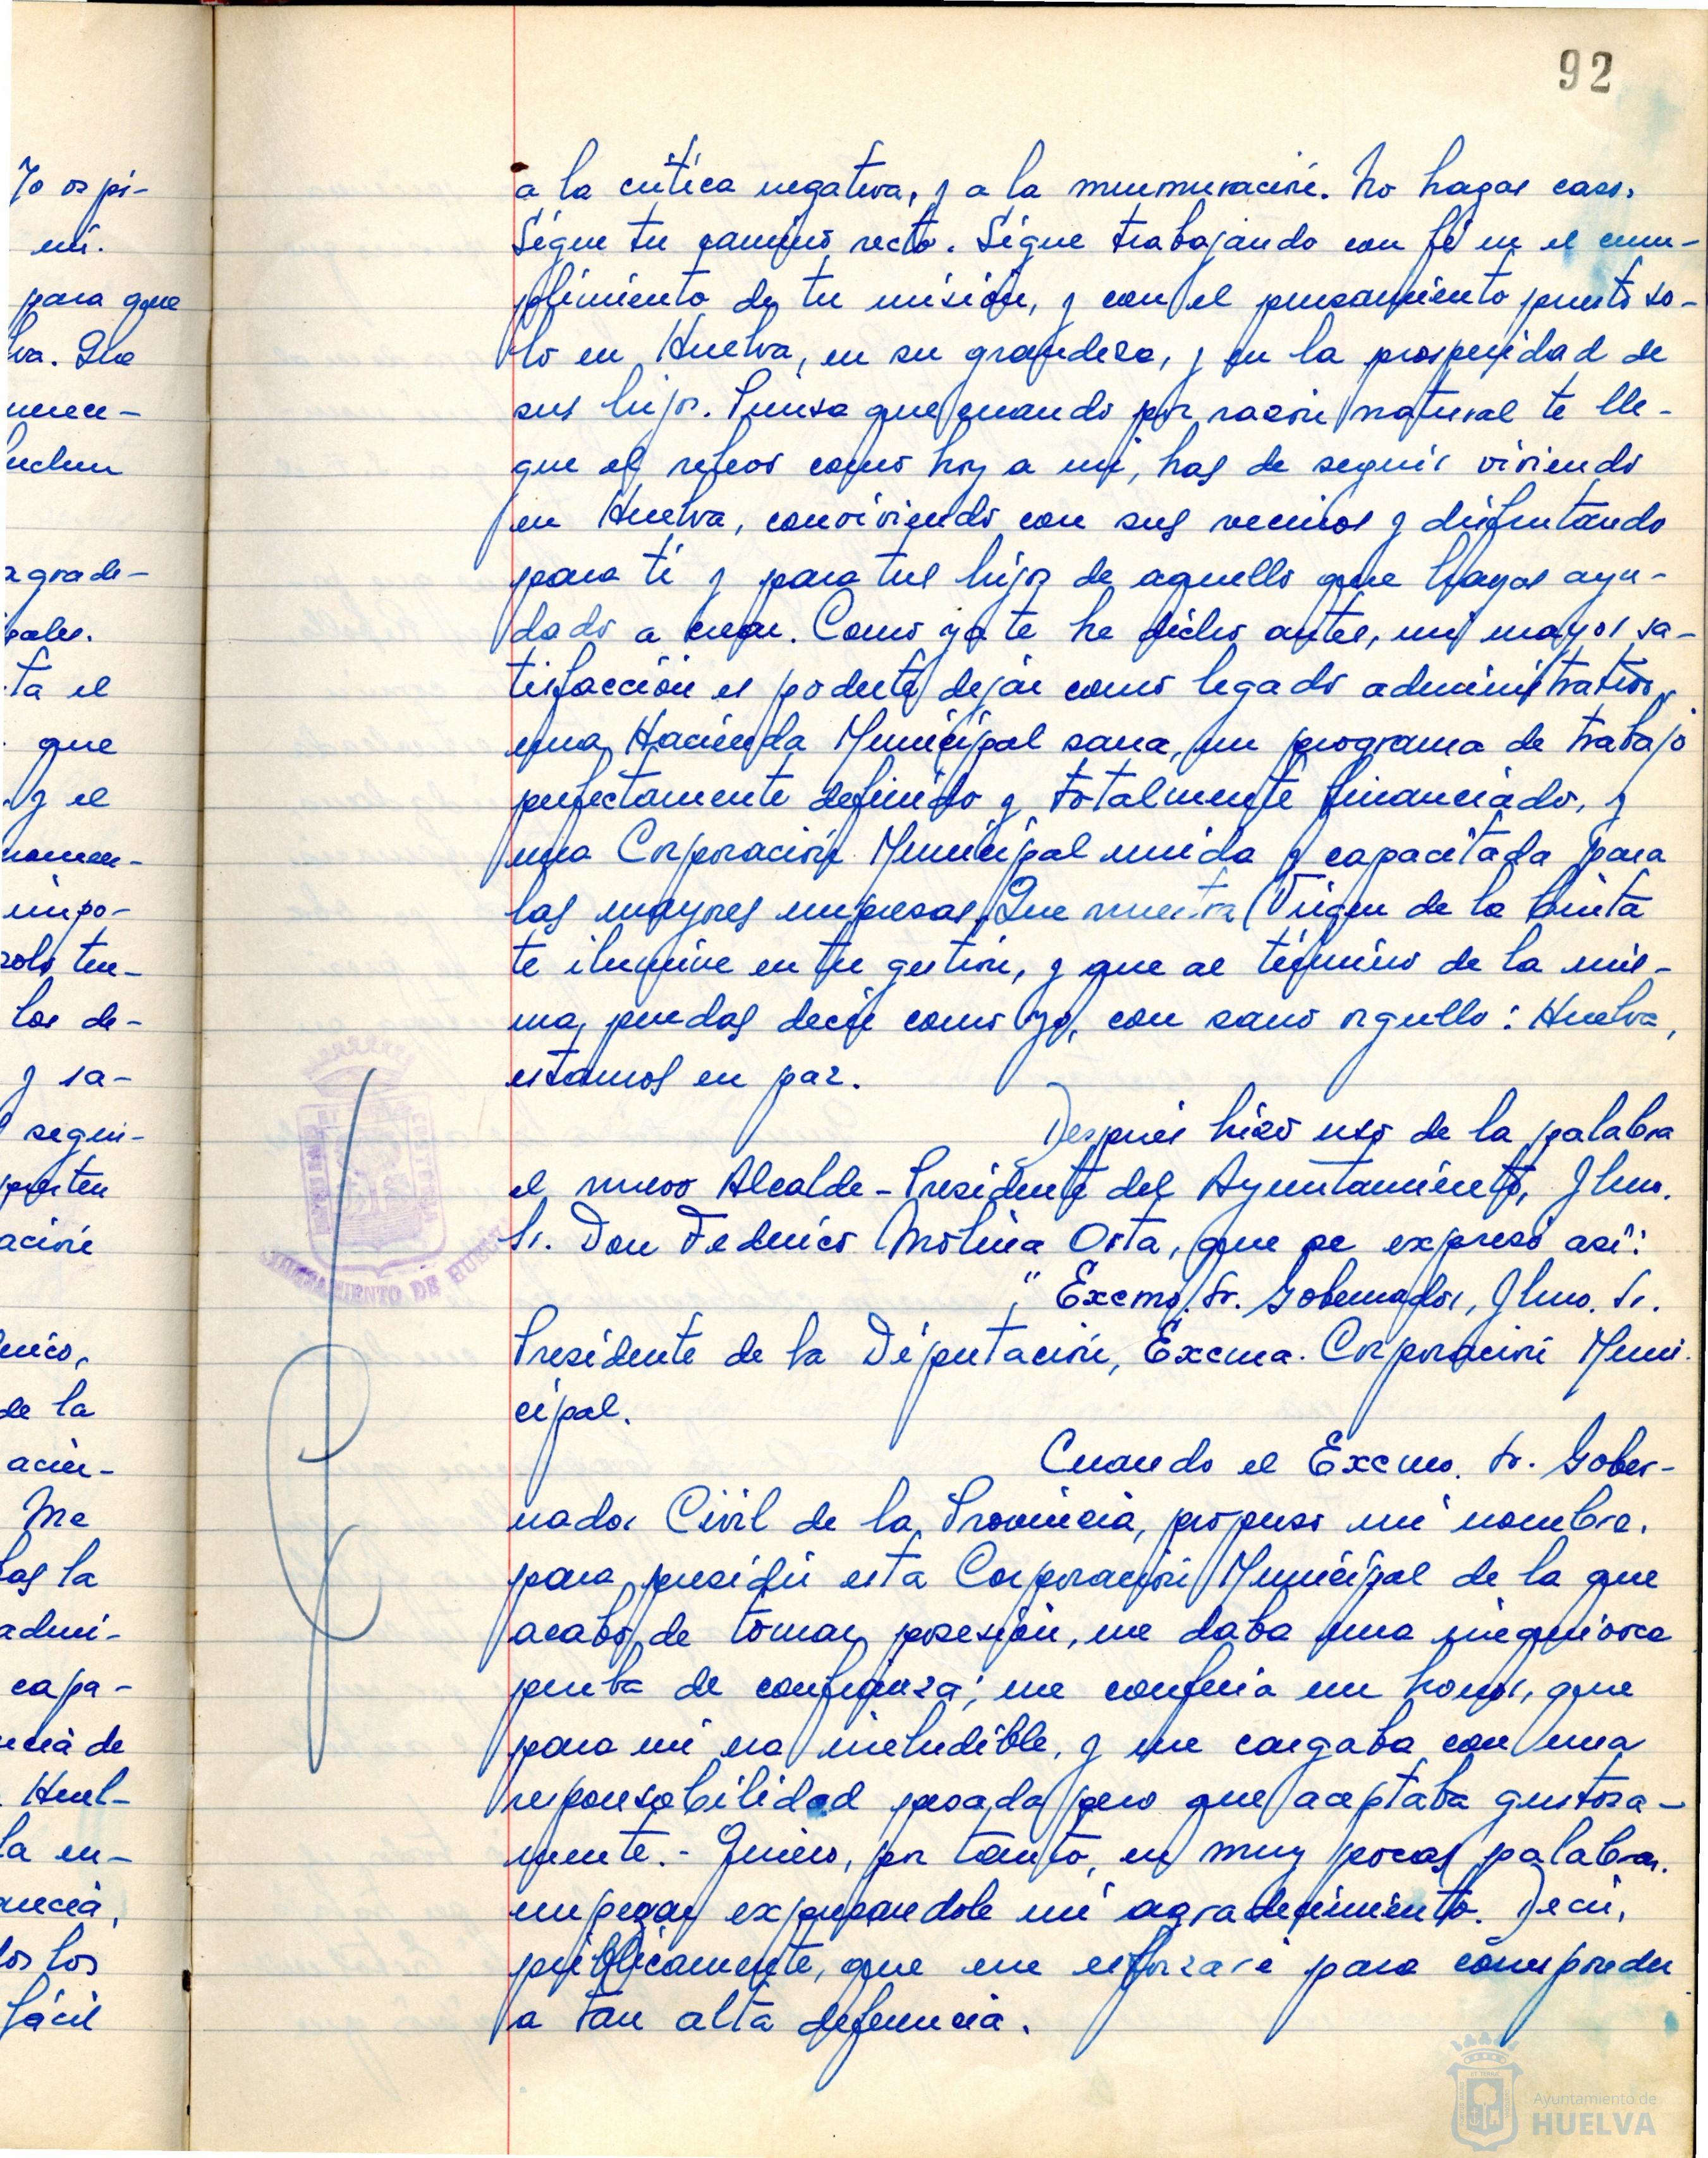 92
a la crítica negativa, y a la murmuración. No hagas caso.
Sigue tu camino recto. Sigue trabajando con fé en el cum-
plimiento de tu misión, y con el pensamiento puesto so-
lo en Huelva, en su grandeza, y en la prosperidad de
sus hijos. Piensa que cuando por razón natural te lle-
gue el relevo como hoy a mi, has de seguir viviendo
en Huelva, conviviendo con sus vecinos y disfrutando
para ti y para tus hijos de aquello que hayas ayu-
dado a crear. Como ya te he dicho antes, mi mayor sa-
tisfacción es poderte dejar como legado administrativo,
una Hacienda Municipal sana, un programa de trabajo
perfectamente definido y totalmente financiado, y
una Corporación Municipal unida y capacitada para
las mayores empresas. Que nuestra Virgen de la Cinta
te ilumine en tu gestión, y que al término de la mis-
ma, puedas decir como yo, con sano orgullo: Huelva,
estamos en paz.
Después hizo uso de la palabra
el nuevo Alcalde-Presidente del Ayuntamiento, Ilmo.
Sr. Don Federico Molina Orta, que se expresó así:
"Excmo. Sr. Gobernador, Ilmo. Sr.
Presidente de la Diputación, Excma. Corporación Muni-
cipal.
Cuando el Excmo. Sr. Gober-
nador Civil de la Provincia, propuso mi nombre,
para presidir esta Corporación Municipal de la que
acabo de tomar posesión, me daba una inequívoca
prueba de confianza; me confería un honor, que
para mi era ineludible, y me cargaba con una
responsabilidad pesada pero que aceptaba gustosa-
mente.- Quiero, por tanto, en muy pocas palabras,
empezar expresandole mi agradecimiento. Decir,
públicamente, que me esforzaré para corresponder
a tan alta deferencia.
Yo os pi-
mí.
para que
lva. Que
merec-
luchen
agrade-
pales.
ta el
que
y el
momen-
impo-
solo ten-
los de-
y sa-
segui-
presten
ación
nico,
de la
acier-
Me
las la
admi-
capa-
encia de
Huel-
la en-
los los
fácil
AYUNTAMIENTO DE HUELVA
Ayuntamiento de
HUELVA